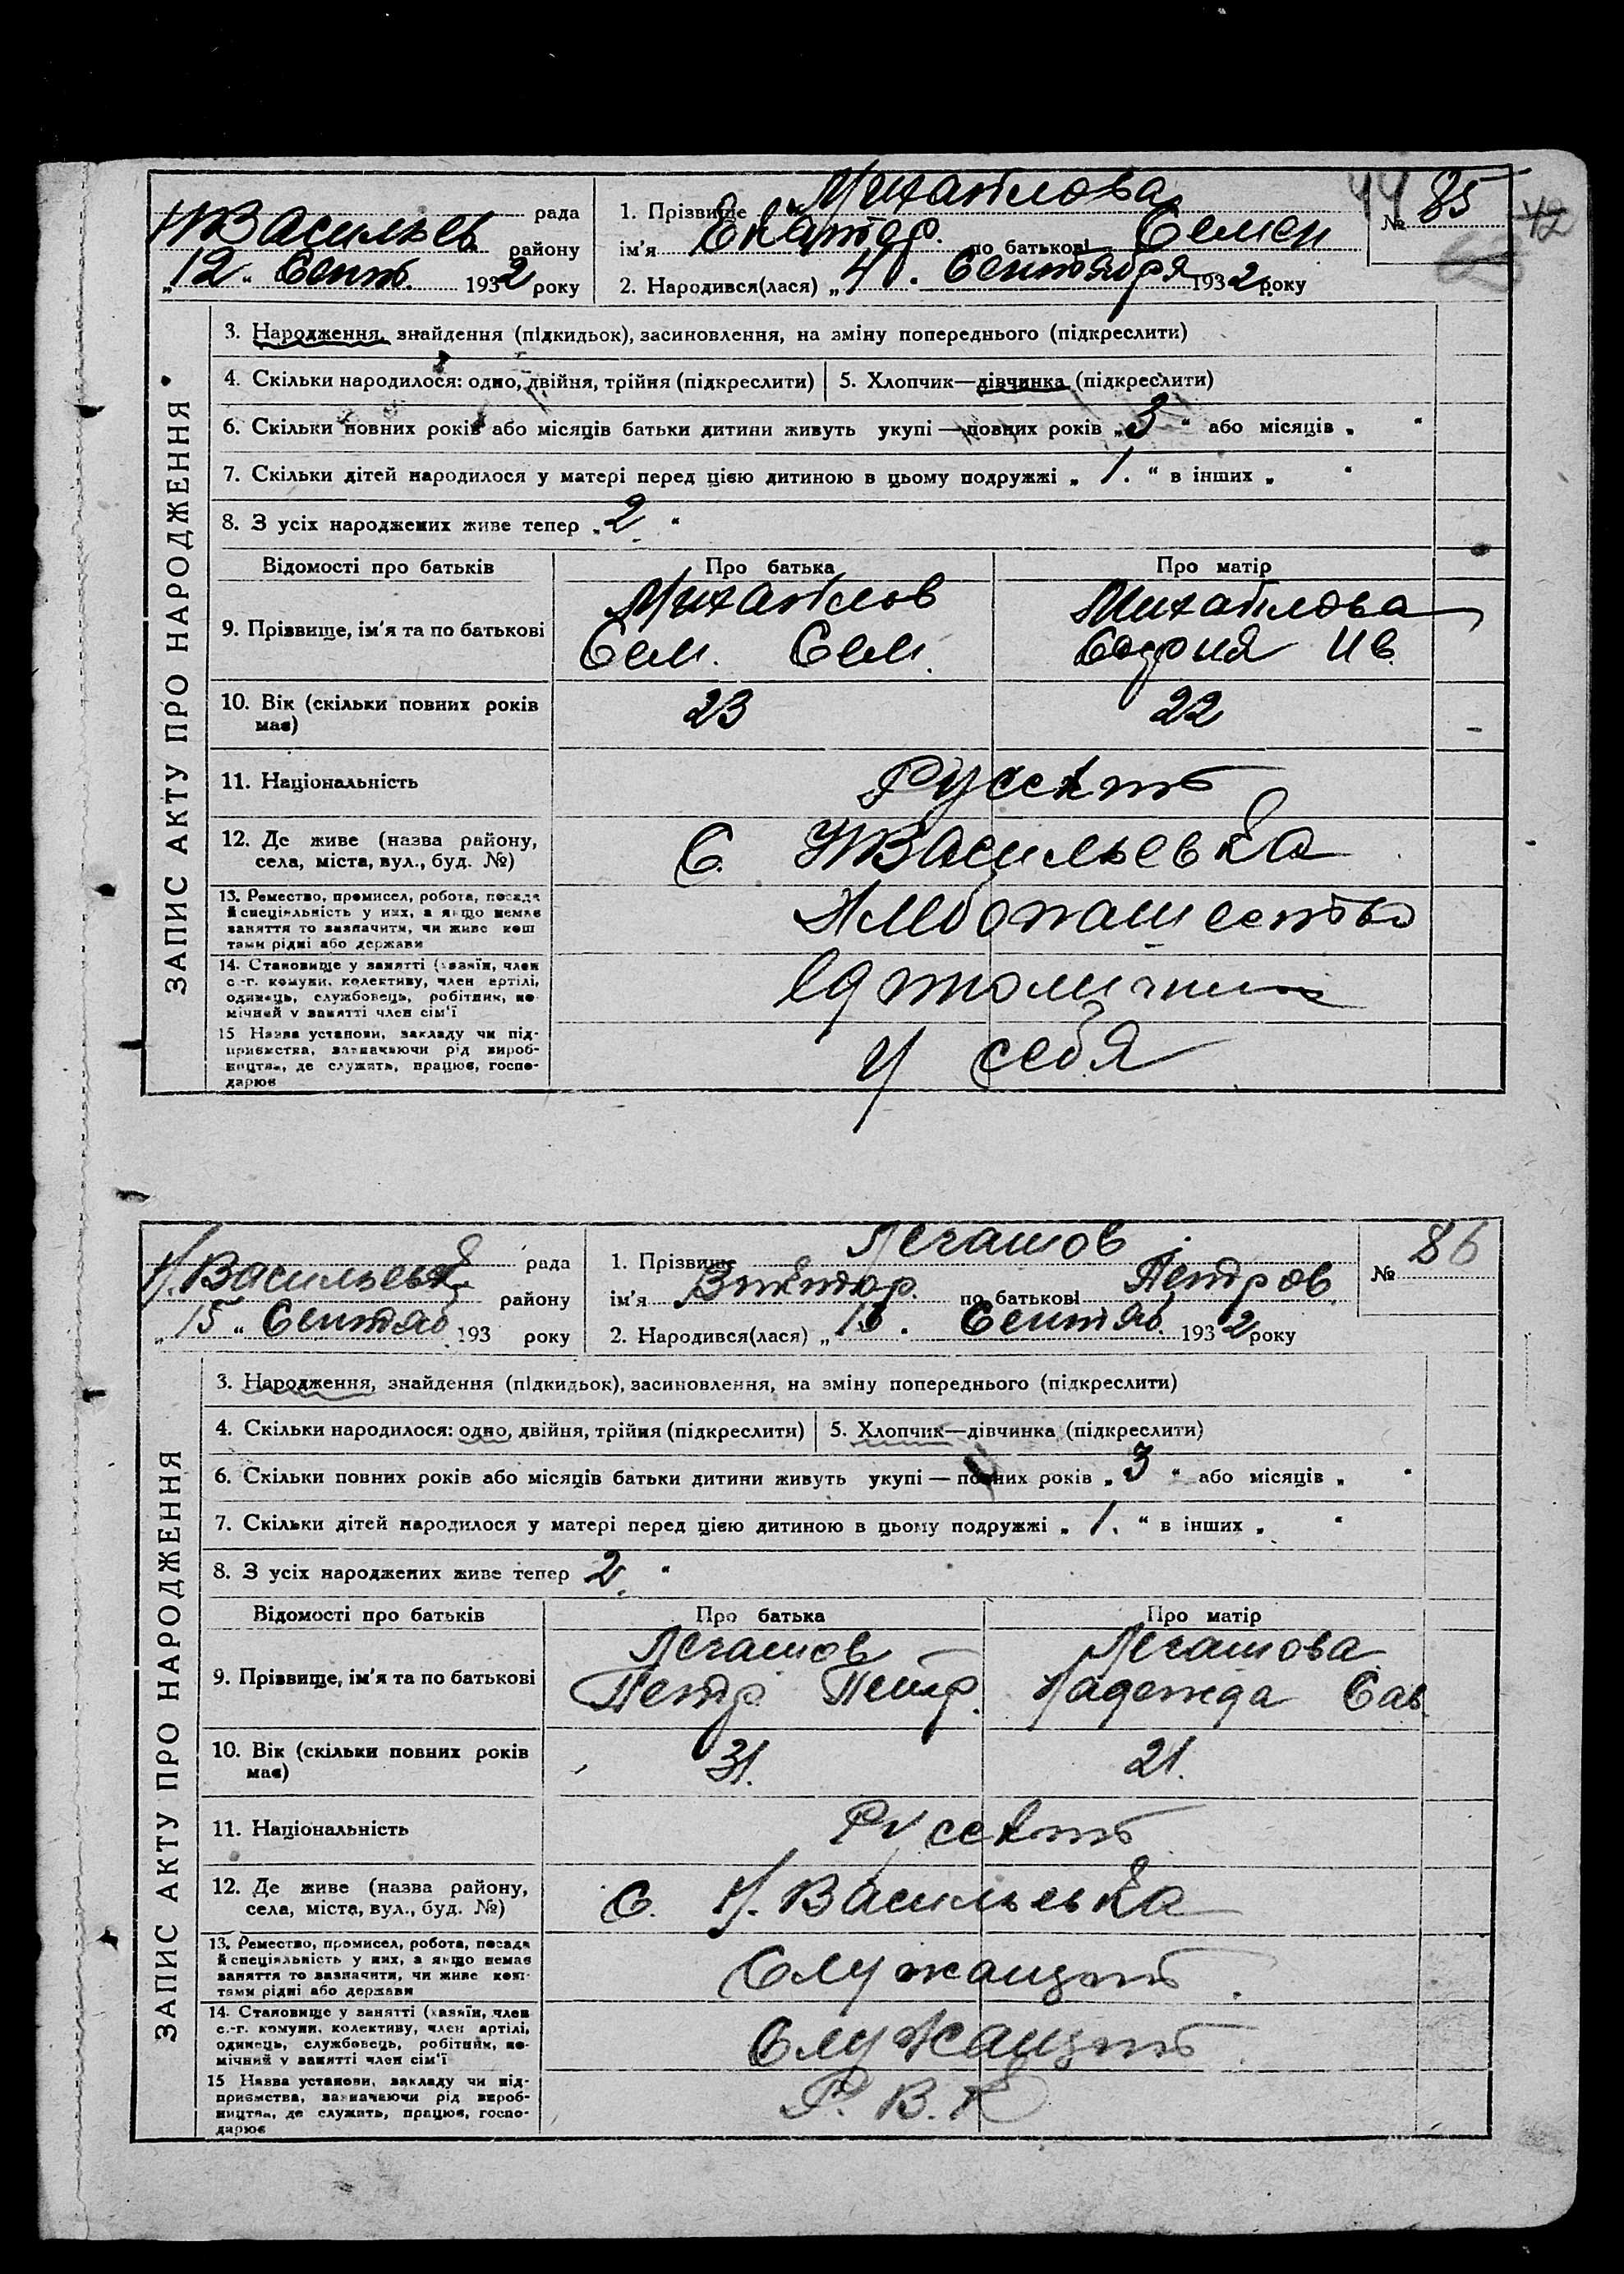 ЗАПИС АКТУ ПРО НАРОДЖЕННЯ
Н Васильев рада
району
„12“ Сент. 1932 року
1. Прізвище Михайлова
ім'я Екатер. по батькові Семен
2. Народився(лася) „4“. Сентября 1932 року
44 № 85
42
3. Народження, знайдення (підкидьок), засиновлення, на зміну попереднього (підкреслити)
4. Скільки народилося: одно, двійня, трійня (підкреслити) 5. Хлопчик—дівчинка (підкреслити)
6. Скільки повних років або місяців батьки дитини живуть укупі — повних років „3“ або місяців „ “
7. Скільки дітей народилося у матері перед цією дитиною в цьому подружжі „1.“ в інших „ “
8. З усіх народжених живе тепер „2.“
Відомості про батьків Про батька Про матір
9. Прізвище, ім'я та по батькові
Михайлов Михайлова
Сем. Сем. София Ив.
10. Вік (скільки повних років має) 23 22
11. Національність Русский
12. Де живе (назва району, села, міста, вул., буд. №) С. Н Васильевка
13. Ремество, промисел, робота, посада
й спеціяльність у них, а якщо немає
заняття то зазначити, чи живе кош
тами рідні або держави
Хлебопашество
14. Становище у занятті (хазяїн, член
с.-г. комуни, колективу, член артілі,
одинець, службовець, робітник, по-
мічний у занятті член сім'ї
15 Назва установи, закладу чи під-
приємства, зазначаючи рід вироб-
ництва, де служить, працює, госпо-
дарює
у себя
ЗАПИС АКТУ ПРО НАРОДЖЕННЯ
Н. Васильевк рада
району
„15“ Сентяб. 193 року
1. Прізвище Легашов
ім'я Виктор. по батькові Петров
2. Народився(лася) „ . Сентяб. 1932 року
№ 86
3. Народження, знайдення (підкидьок), засиновлення, на зміну попереднього (підкреслити)
4. Скільки народилося: одно, двійня, трійня (підкреслити) 5. Хлопчик—дівчинка (підкреслити)
6. Скільки повних років або місяців батьки дитини живуть укупі — повних років „3“ або місяців „ “
7. Скільки дітей народилося у матері перед цією дитиною в цьому подружжі „1.“ в інших „ “
8. З усіх народжених живе тепер 2. “
Відомості про батьків Про батька Про матір
9. Прізвище, ім'я та по батькові
Легашов Легашова
Петр Петр. Надежда Сав.
10. Вік (скільки повних років має) 31. 21.
11. Національність Русский
12. Де живе (назва району, села, міста, вул., буд. №) С. Н. Васильевка
13. Ремество, промисел, робота, посада
й спеціяльність у них, а якщо немає
заняття то зазначити, чи живе кош-
тами рідні або держави
Служащий.
14. Становище у занятті (хазяїн, член
с.-г. комуни, колективу, член артілі,
одинець, службовець, робітник, по-
мічний у занятті член сім'ї
Служащий.
15 Назва установи, закладу чи під-
приємства, зазначаючи рід вироб-
ництва, де служить, працює, госпо-
дарює
Р. В. К